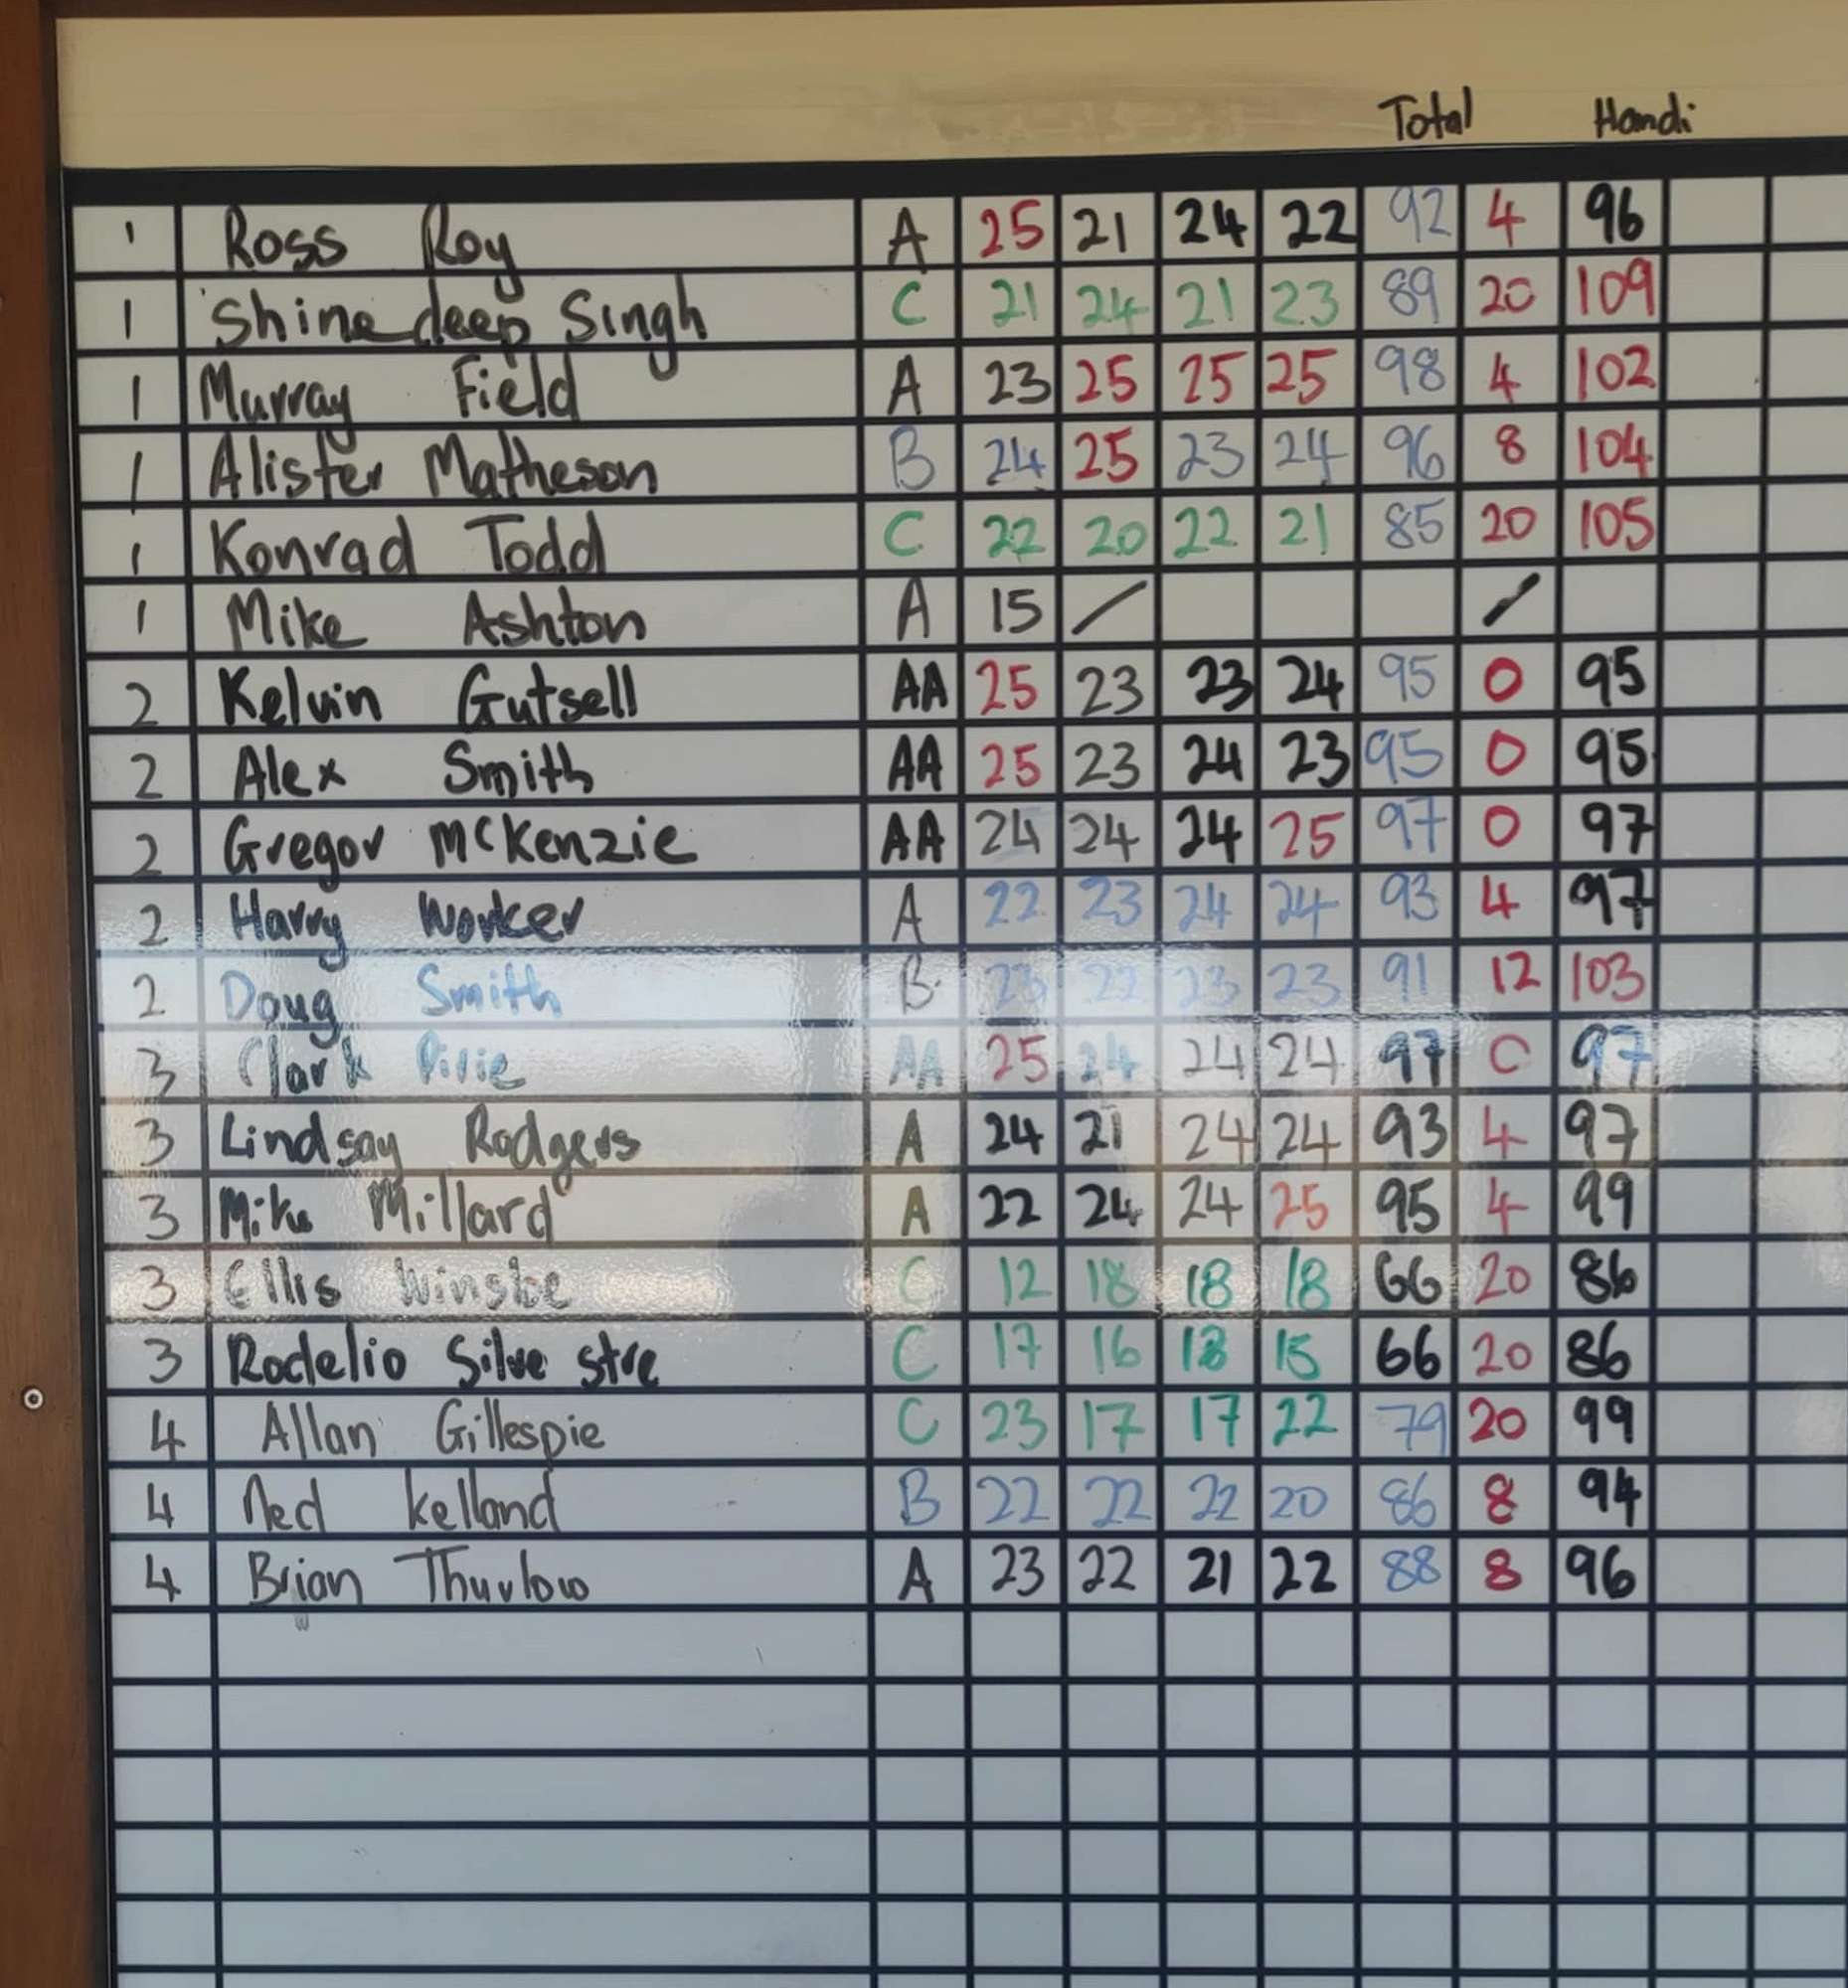 Total Handi
1 Ross Roy A 25 21 24 22 92 4 96
1 Shinedeep Singh C 21 24 21 23 89 20 109
1 Murray Field A 23 25 25 25 98 4 102
1 Alister Matheson B 24 25 23 24 96 8 104
1 Konrad Todd C 22 20 22 21 85 20 105
1 Mike Ashton A 15 / /
2 Kelvin Gutsell AA 25 23 23 24 95 0 95
2 Alex Smith AA 25 23 24 23 95 0 95
2 Gregor McKenzie AA 24 24 24 25 97 0 97
2 Harry Worker A 22 23 24 24 93 4 97
2 Doug Smith B 23 22 23 23 91 12 103
3 Clark Pirie AA 25 24 24 24 97 0 97
3 Lindsay Rodgers A 24 21 24 24 93 4 97
3 Mike Millard A 22 24 24 25 95 4 99
3 Ellis C 12 18 18 18 66 20 86
3 Rodelio Silve stre C 17 16 18 15 66 20 86
4 Allan Gillespie C 23 17 17 22 79 20 99
4 Ned Kelland B 22 22 22 20 86 8 94
4 Brian Thurlow A 23 22 21 22 88 8 96